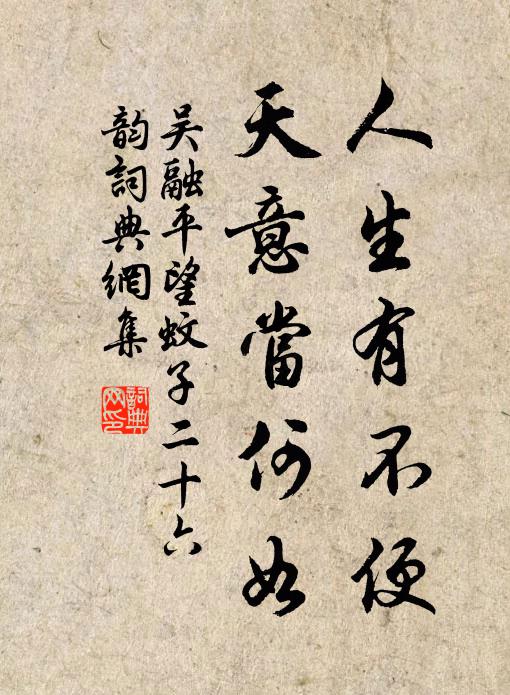 人生有不便
天意當何如
吳融平望蚊子二十六
韵詞典網集
詞典
网印